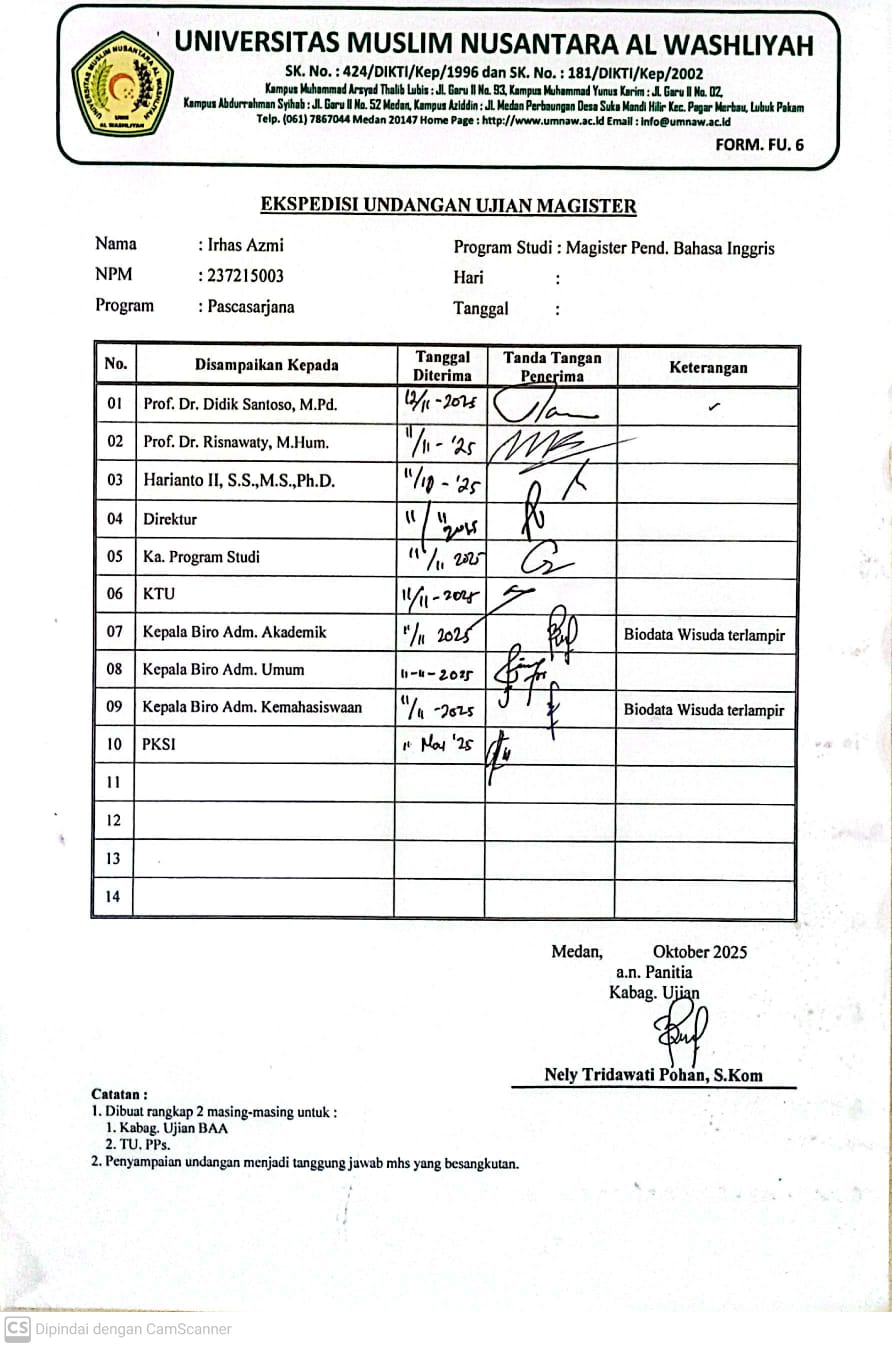 UNIVERSITAS MUSLIM NUSANTARA AL WASHLIYAH
SK. No. : 424/DIKTI/Kep/1996 dan SK. No. : 181/DIKTI/Kep/2002
Kampus Muhammad Arsyad Thalib Lubis : Jl. Garu II No. 93, Kampus Muhammad Yunus Karim : Jl. Garu II No. 02,
Kampus Abdurrahman Syihab : Jl. Garu II No. 52 Medan, Kampus Aziddin : Jl. Medan Perbaungan Desa Suka Mandi Hilir Kec. Pagar Merbau, Lubuk Pakam
Telp. (061) 7867044 Medan 20147 Home Page : http://www.umnaw.ac.id Email : info@umnaw.ac.id
UNIVERSITAS MUSLIM NUSANTARA AL WASHLIYAH
UMN
AL WASHLIYAH
FORM. FU. 6
EKSPEDISI UNDANGAN UJIAN MAGISTER
Nama : Irhas Azmi Program Studi : Magister Pend. Bahasa Inggris
NPM : 237215003 Hari :
Program : Pascasarjana Tanggal :
No. Disampaikan Kepada Tanggal Diterima Tanda Tangan Penerima Keterangan
01 Prof. Dr. Didik Santoso, M.Pd. 12/11 - 2025 ✓
02 Prof. Dr. Risnawaty, M.Hum. 11/11 - '25
03 Harianto II, S.S.,M.S.,Ph.D. 11/10 - '25
04 Direktur 11/11 2025
05 Ka. Program Studi 11/11 2025
06 KTU 11/11 - 2025
07 Kepala Biro Adm. Akademik 11/11 2025 Biodata Wisuda terlampir
08 Kepala Biro Adm. Umum 11-11-2025
09 Kepala Biro Adm. Kemahasiswaan 11/11 - 2025 Biodata Wisuda terlampir
10 PKSI 11 Nov '25
11
12
13
14
Medan, Oktober 2025
a.n. Panitia
Kabag. Ujian
Nely Tridawati Pohan, S.Kom
Catatan :
1. Dibuat rangkap 2 masing-masing untuk :
1. Kabag. Ujian BAA
2. TU. PPs.
2. Penyampaian undangan menjadi tanggung jawab mhs yang besangkutan.
CS Dipindai dengan CamScanner